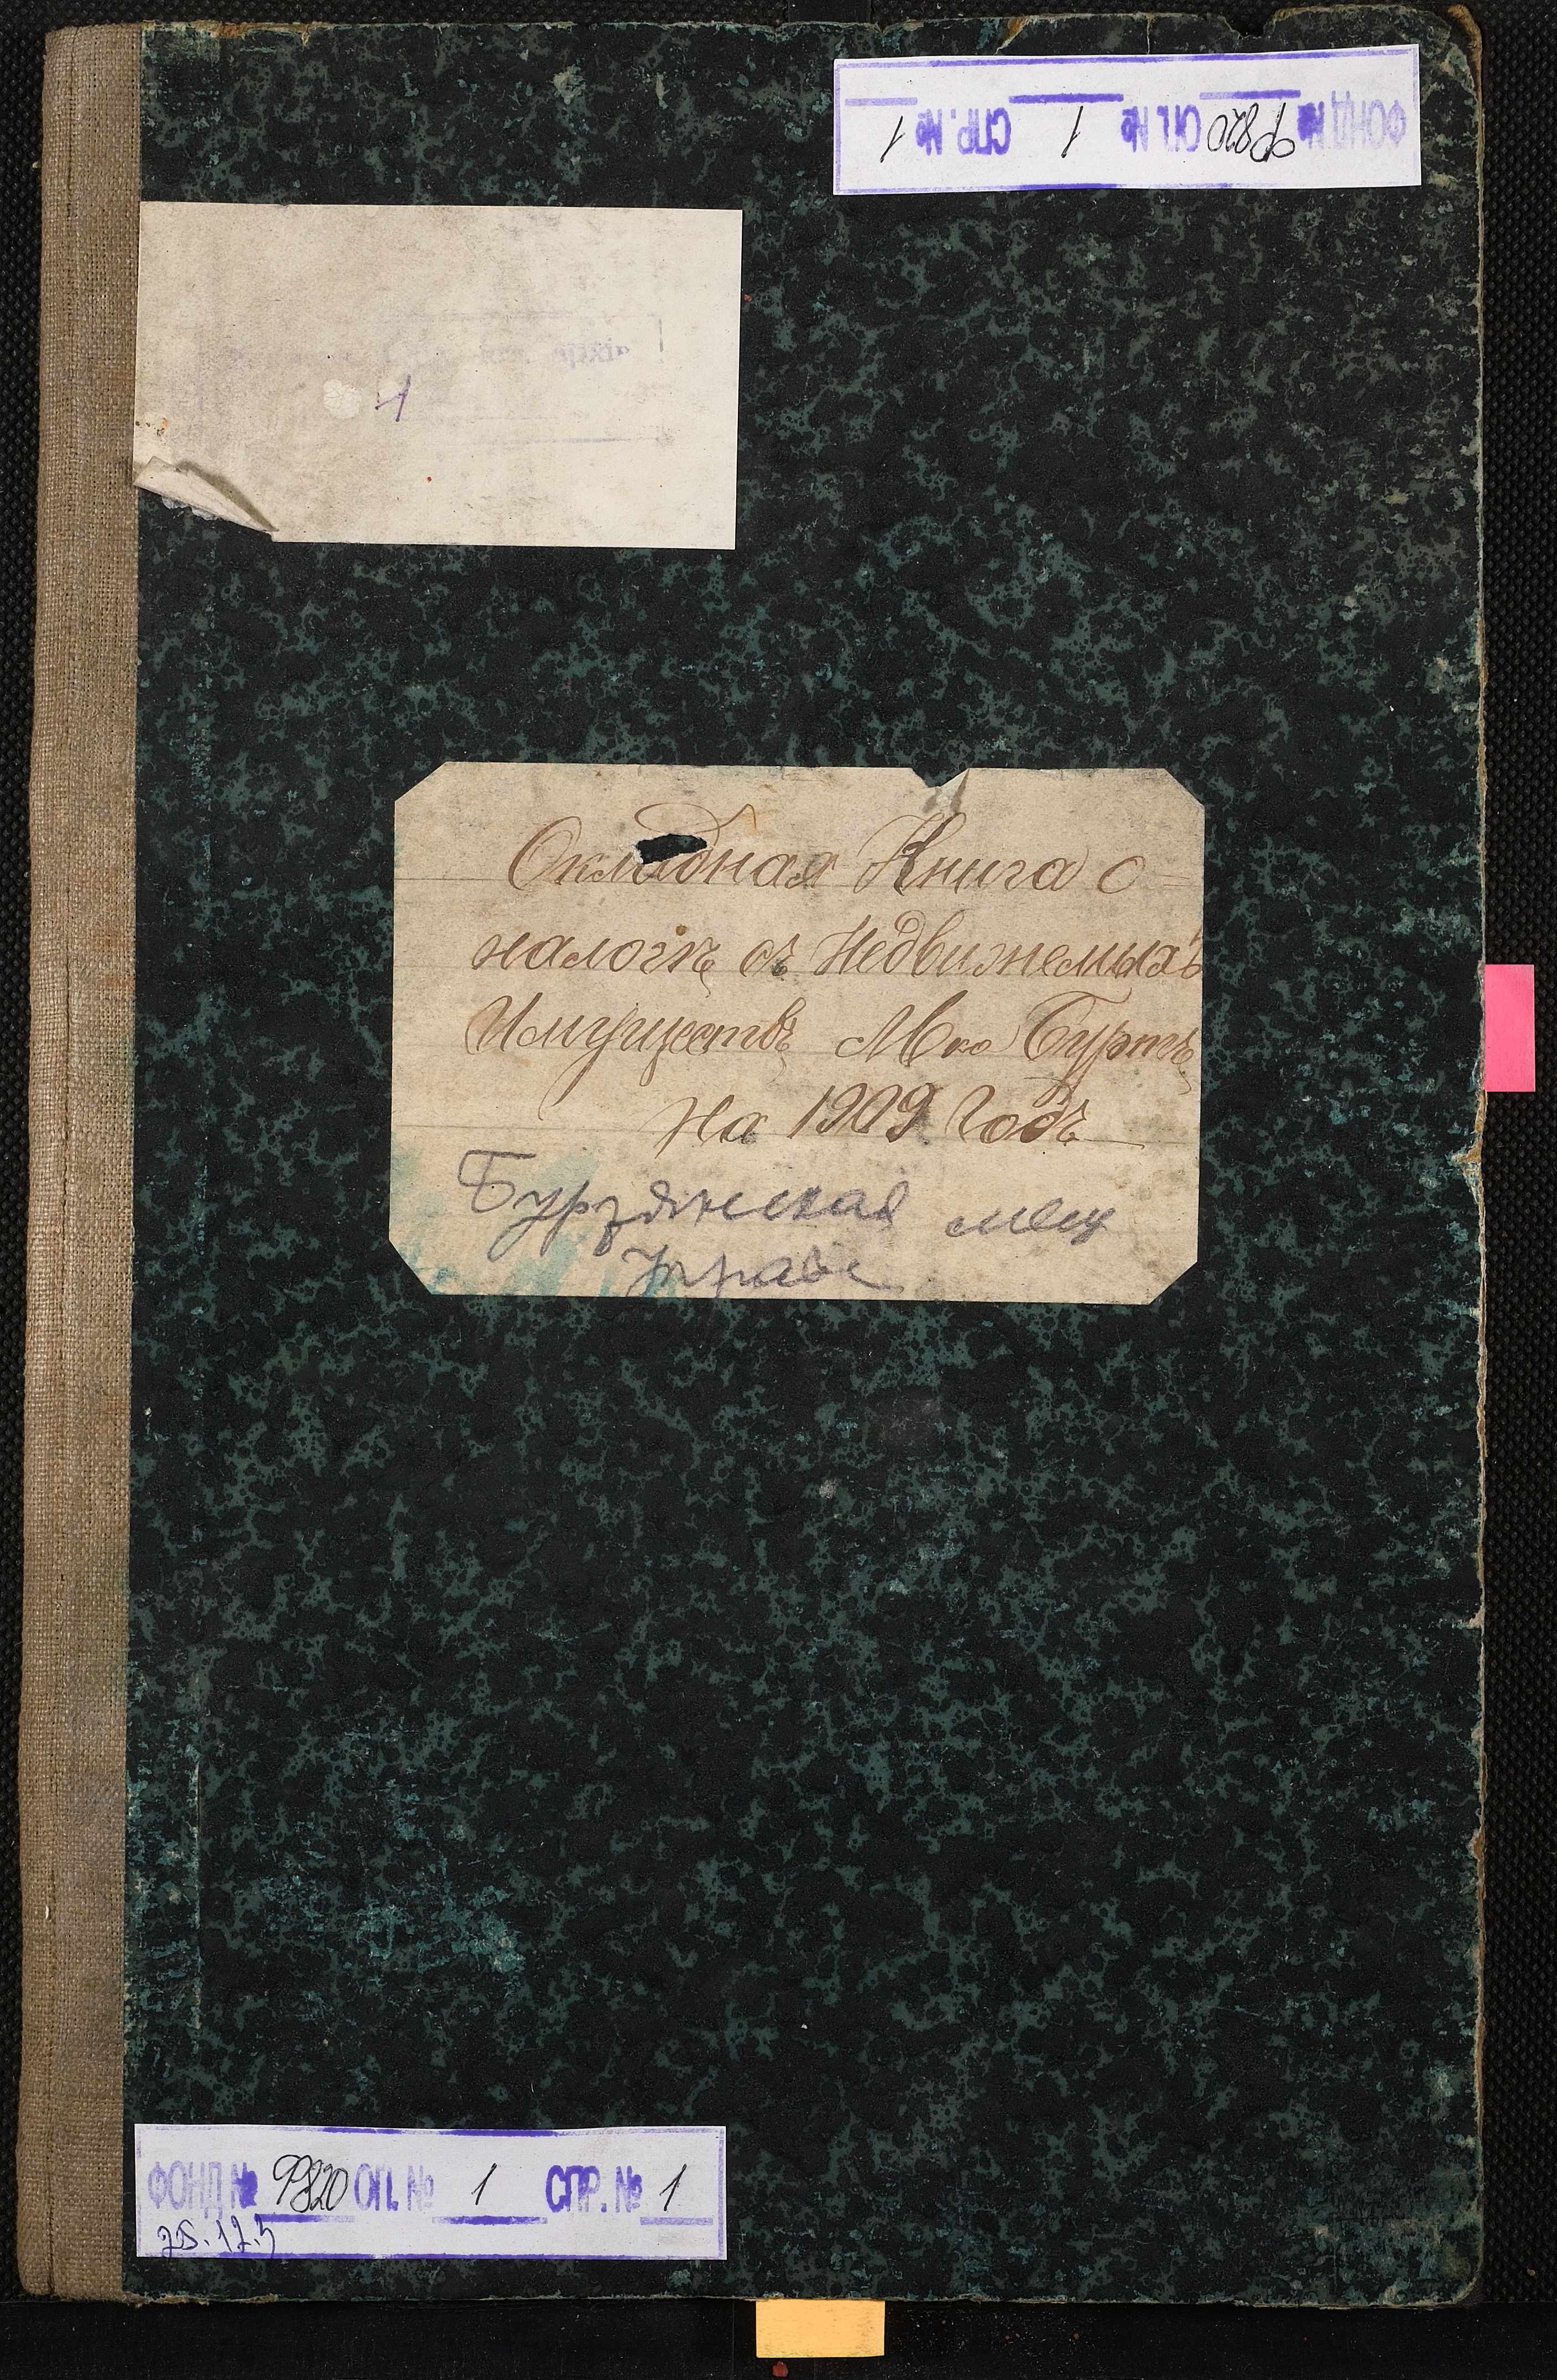 ФОНД № 9820 ОП. № 1 СПР. № 1
1
Окладная Книга о
налогѣ съ Недвижемыхъ
Имуществъ М ко Буртъ
на 1909 Годъ
мещ
Управе
ФОНД № 9820 ОП. № 1 СПР. № 1